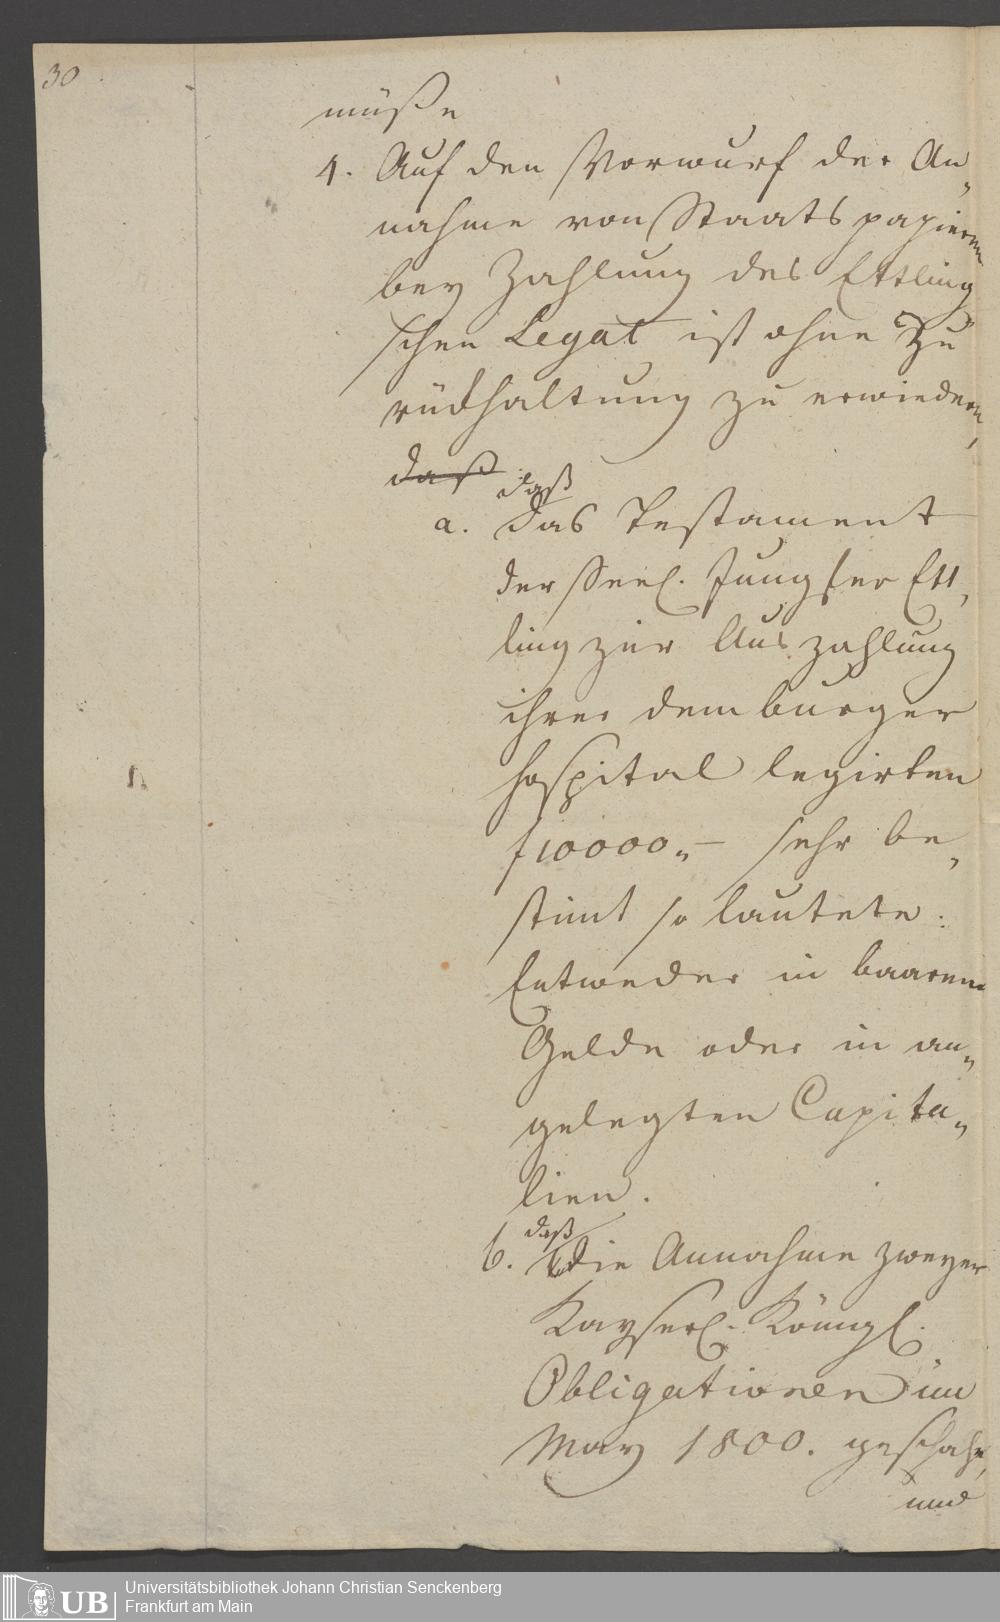 30
müße
4. Auf den Vorwurf der An„
nahme von Staatspapieren
bey Zahlung des Ettling
schen Legat ist ohne Zu
rückhaltung zu erwiedern,
daß
daß
a. das Testament
der Seel. Jungfer Ett„
ling zur Auszahlung
ihrer dem burger
hospital legirten
f 10000„– sehr be„
stimt so lautete:
Entweder in baarem
Gelde oder in an„
gelegten Capita„
lien.
daß
b. die Annahme zweyer
Kayserl. Königl.
Obligationen im
May 1800. geschah,
und
UB
Universitätsbibliothek Johann Christian Senckenberg
Frankfurt am Main